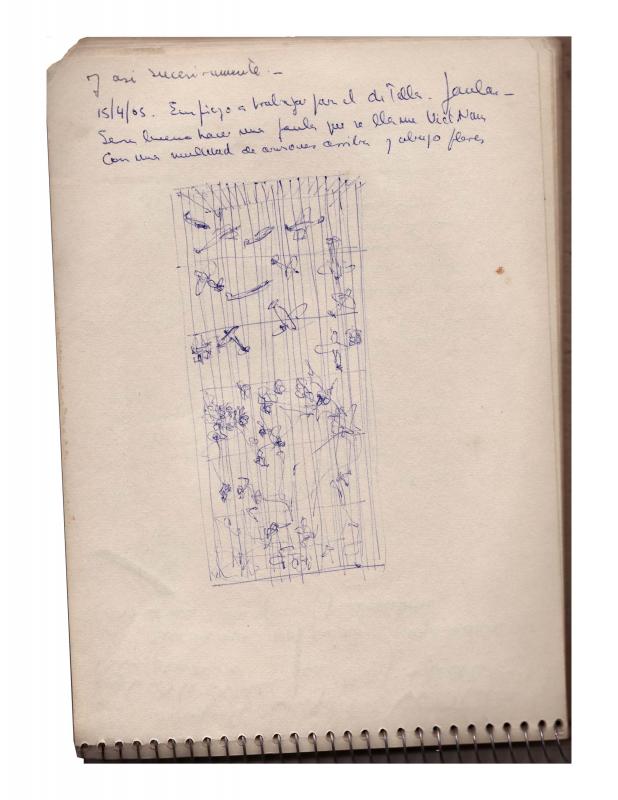 y asi sucesivamente. —
15/4/65. Empiezo a trabajar para el di Tella. Jaulas —
Seria bueno hacer una jaula que se llame Viet Nam
Con una multitud de aviones arriba y abajo flores